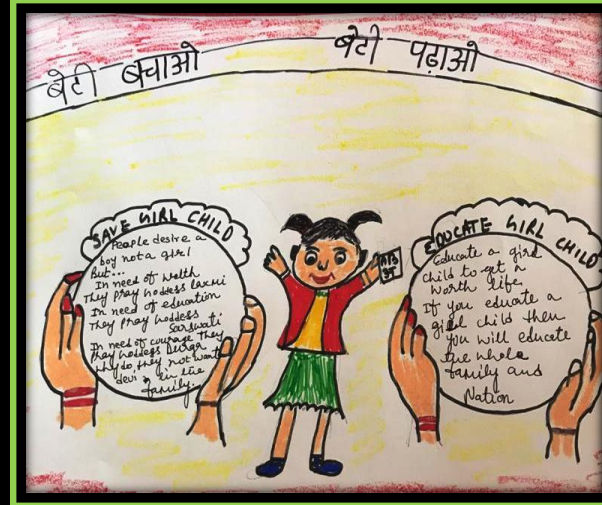 बेटी बचाओ
बेटी पढ़ाओ
SAVE GIRL CHILD
People desire a
boy not a girl
But...
In need of welth
They pray Goddess laxmi
In need of education
They pray Goddess
Sarswati
In need of courage they
Pray Goddess Durga
Why do they not want
devi in the
family.
EDUCATE GIRL CHILD
Educate a girl
Child to get a
worth life.
If you eduate a
girl child then
you will educate
the whole
family and
Nation